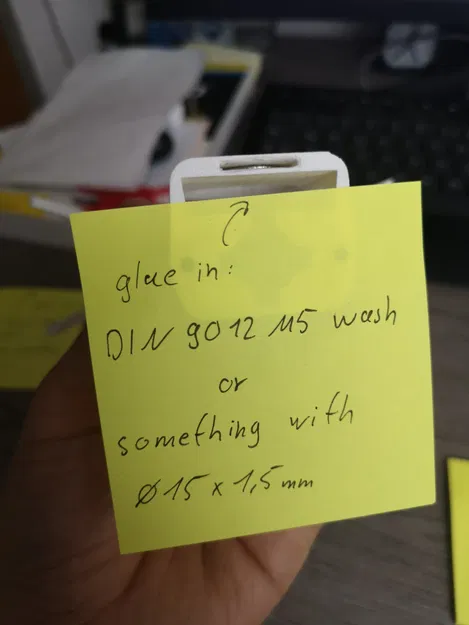 glue in:
DIN 9012 M5 wash
or
something with
Ø15 x 1,5mm